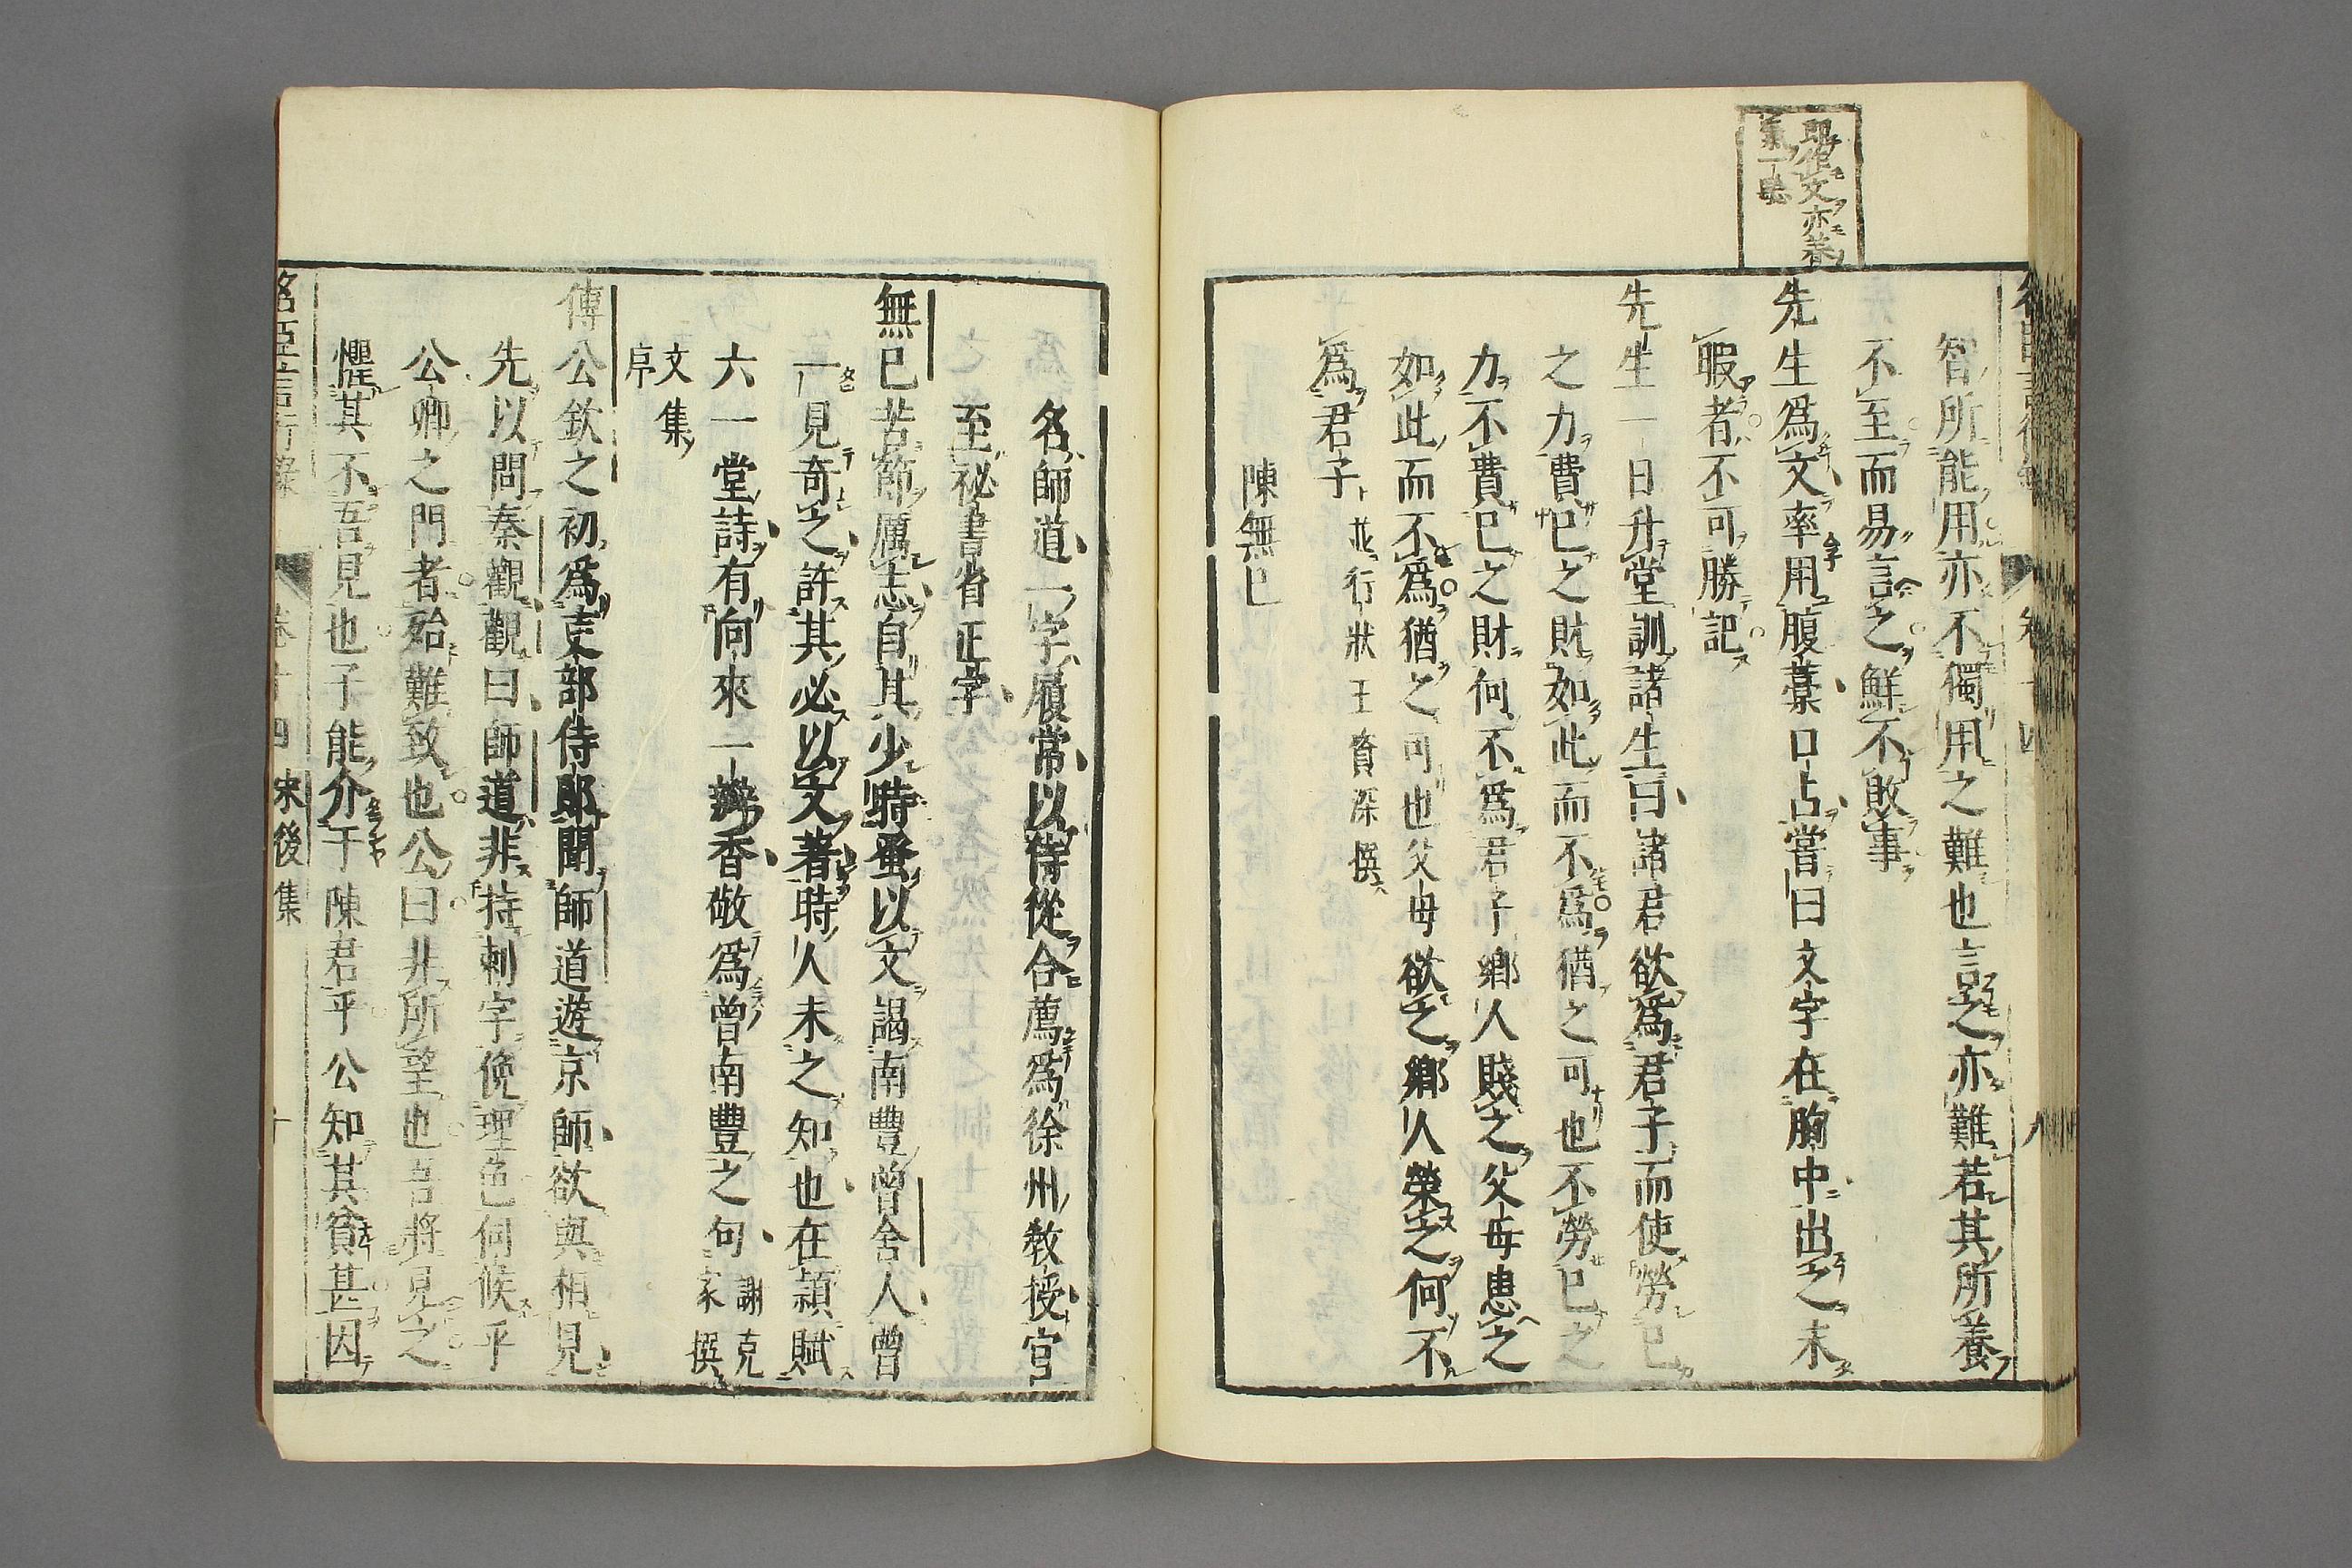 智所能用亦不獨用之難也言之亦難若其所養
不至而易言之鮮不敗事
先生爲文率用腹藁口占嘗曰文字在胸中出之未
暇者不可勝記
先生一日升堂訓諸生曰諸君欲爲君子而使勞己
之力費己之財如此而不爲猶之可也不勞己之
力不費己之財何不爲君子鄉人賤之父母患之
如此而不爲猶之可也父母欲之鄉人榮之何不
爲君子並行狀王資深撰
陳無已
名師道一字履常以待從合薦爲徐州敎授官
至祕書省正字
無已苦節厲志自其少時蚤以文謁南豐曾舍人曾
一見奇之許其必以文著時人未之知也在潁賦
六一堂詩有向來一瓣香敬爲曾南豐之句謝克
家撰
文集
序
傅公欽之初爲吏部侍郎聞師道遊京師欲與相見
先以問秦觀觀曰師道非持刺字俛理色伺候乎
公卿之門者殆難致也公曰非所望也吾將見之
懼其不吾見也子能介于陳君乎公知其貧甚因
卷十四 宋後集